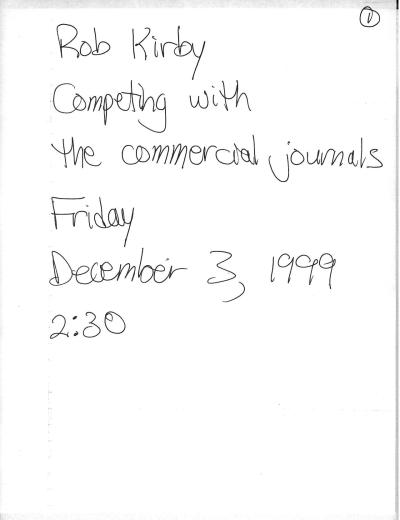 1
Rob Kirby
Competing with
the commercial journals
Friday
December 3, 1999
2:30